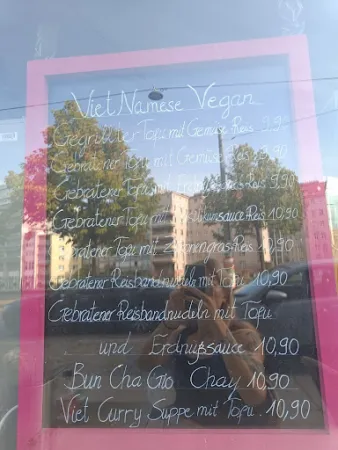 Viet Namese Vegan
Gegrillter Tofu mit Gemüse Reis 9,9
Gebratener Tofu mit Gemüse Reis
Gebratener Tofu mit Reis
Gebratener Tofu mit sauce Reis 10,90
Gebratener Tofu mit Zitronengras-Reis 10,90
Gebratener Reisbandnudeln mit Tofu 10,90
Gebratener Reisbandnudeln mit Tofu
und Erdnußsauce 10,90
Bun Cha Gio Chay 10,90
Viet Curry Suppe mit Tofu. 10,90